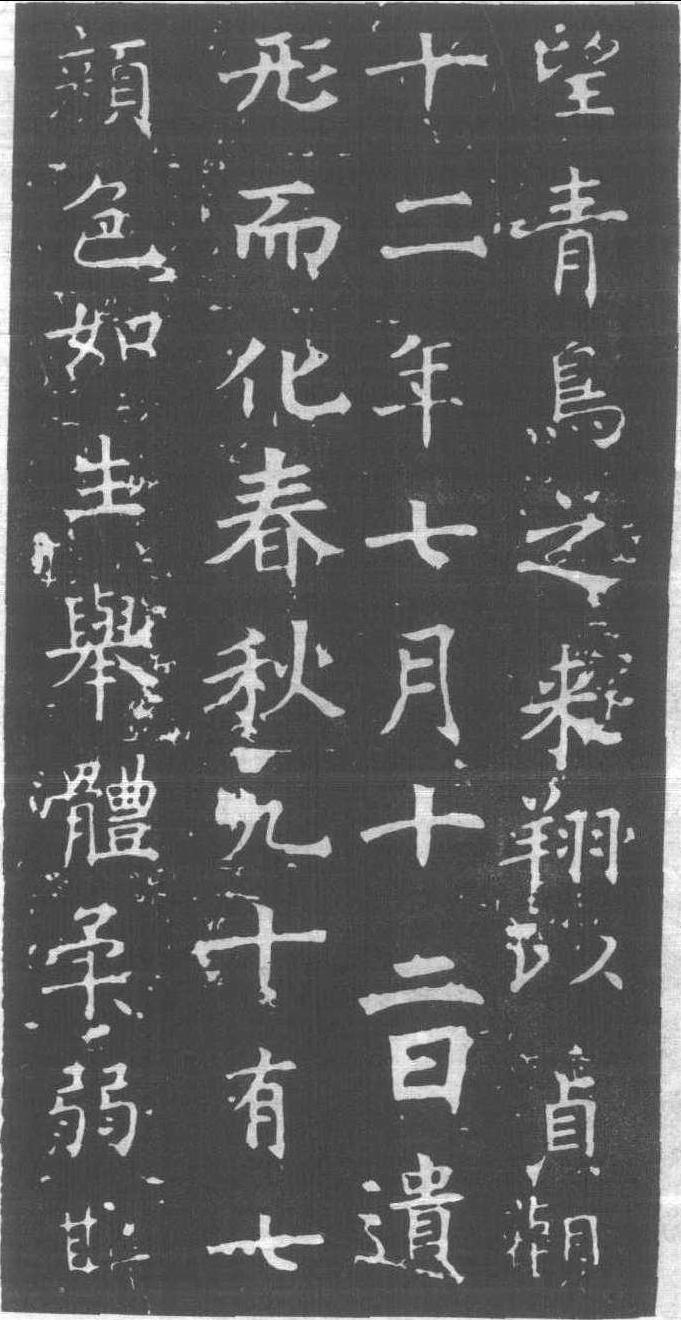 望青鳥之来翔以貞觀
十二年七月十二日遺
形而化春秋九十有七
顏色如生舉體柔弱